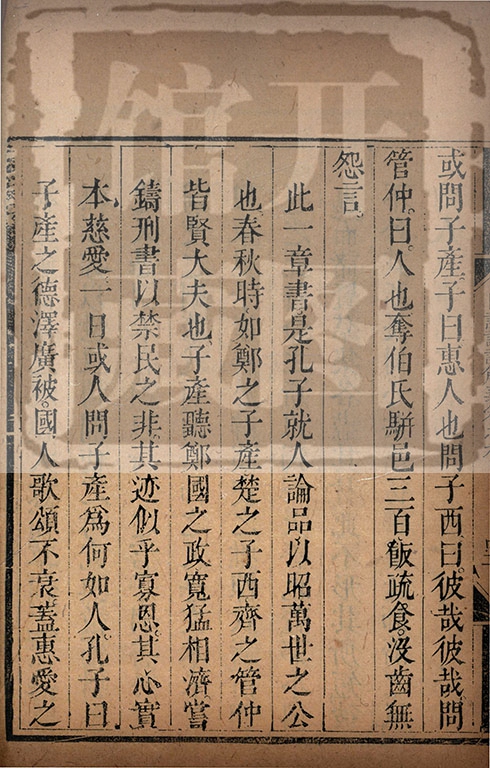 或問子產子曰惠人也問子西曰彼哉彼哉問
管仲曰人也奪伯氏駢邑三百飯疏食沒齒無
怨言
此一章書是孔子就人論品以昭萬世之公
也春秋時如鄭之子產楚之子西齊之管仲
皆賢大夫也子產聽鄭國之政寬猛相濟嘗
鑄刑書以禁民之非其迹似乎寡恩其心實
本慈愛一日或人問子產為何如人孔子曰
子產之德澤廣被國人歌頌不衰蓋惠愛之